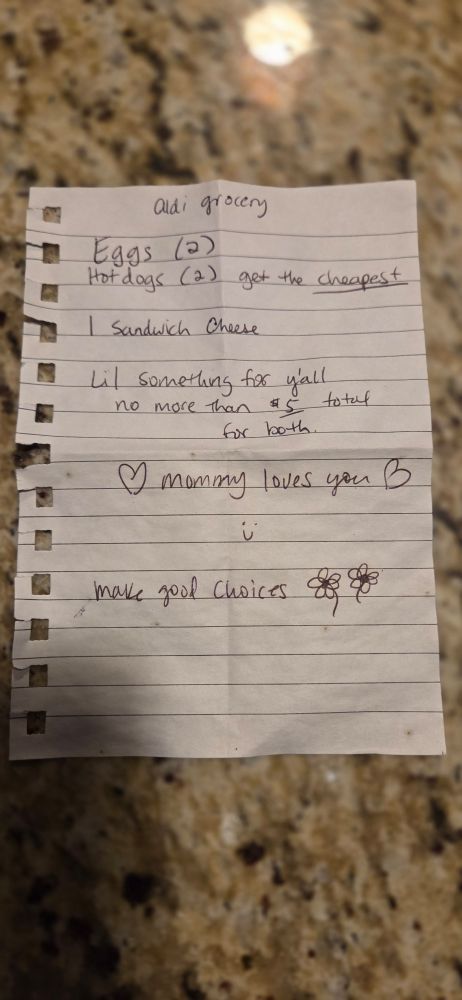 aldi grocery
Eggs (2)
Hotdogs (2) get the cheapest
1 Sandwich Cheese
Lil something for y'all
no more than $5 total
for both.
♡ mommy loves you ♡
make good choices